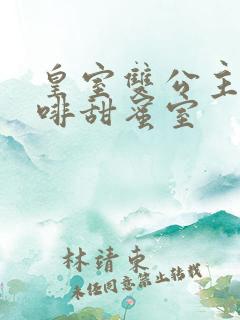 皇室雙公主
啡甜蜜室
林靖東
未經同意禁止轉載